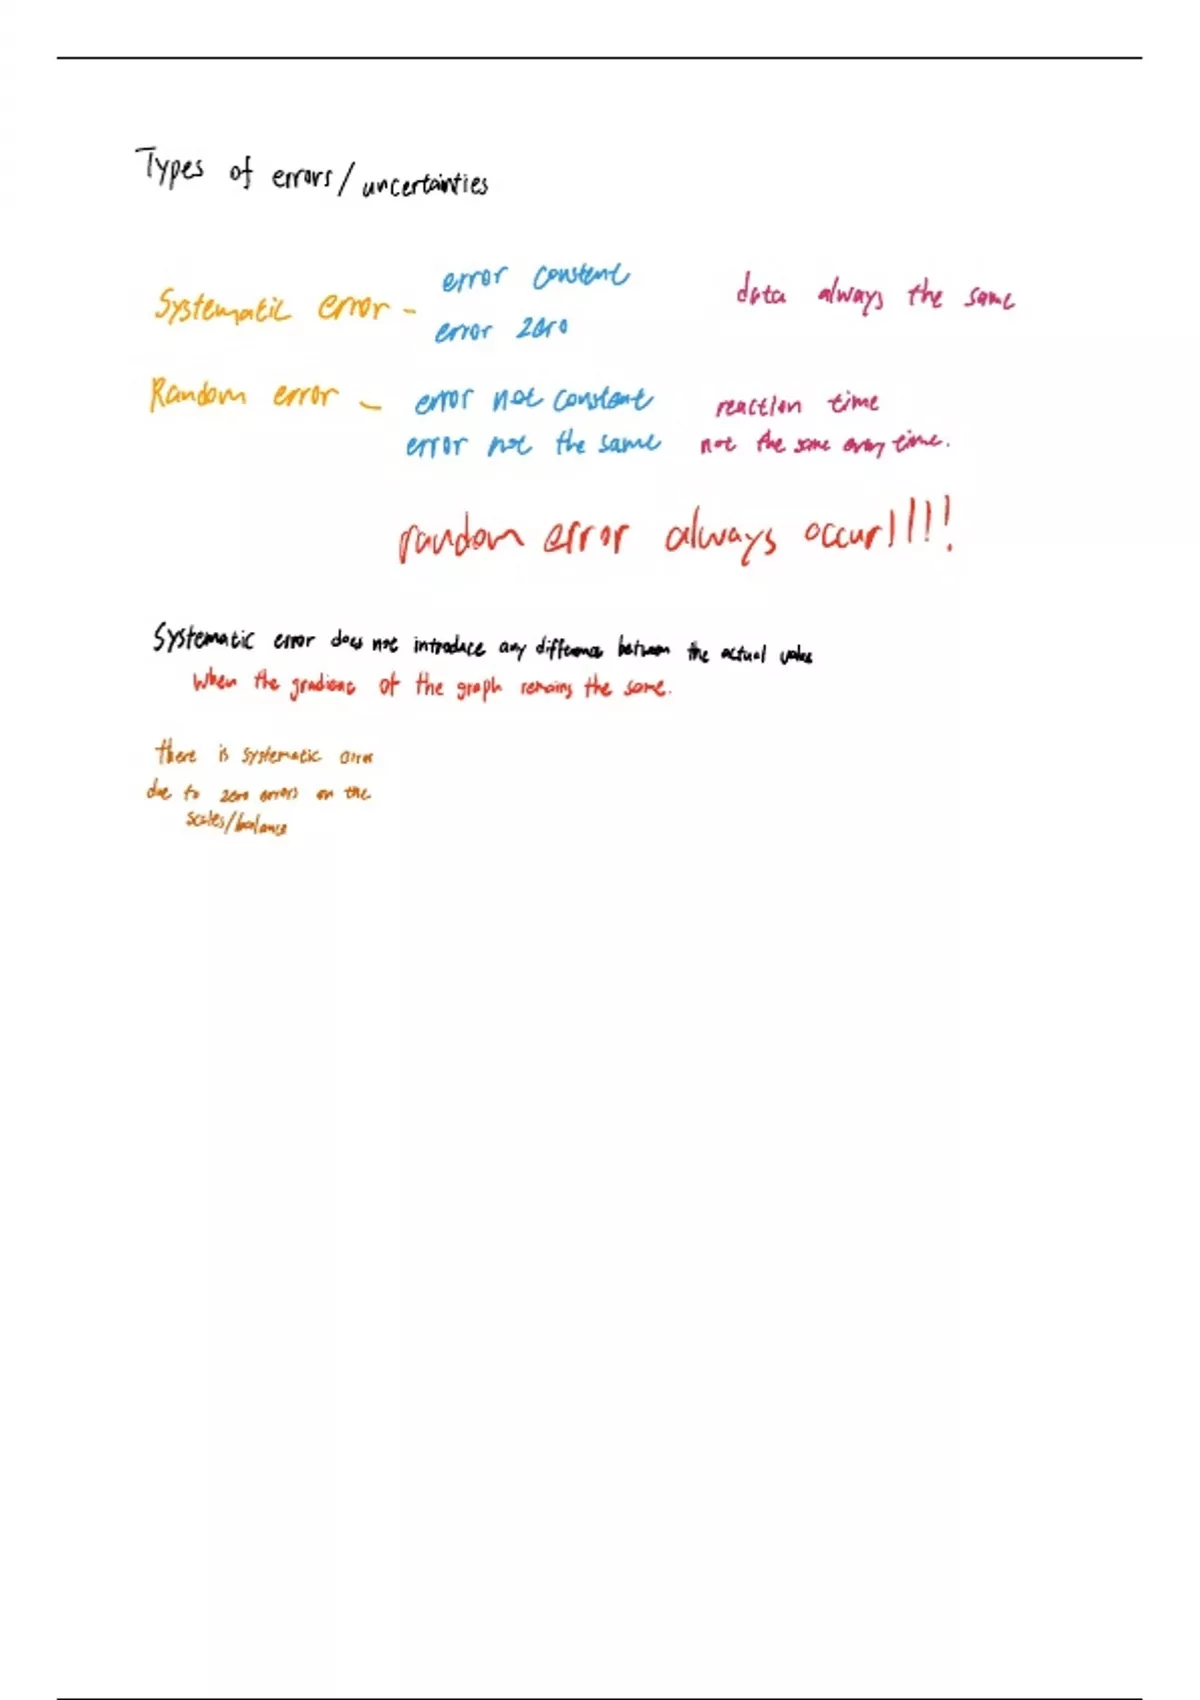 Types of errors/uncertainties
error constant
data always the same
Systematic error -
error zero
Random error - error not constant
reaction time
error not the same
not the same every time.
random error always occur!!!!
Systematic error does not introduce any difference between the actual value
When the gradient of the graph remains the same.
there is systematic error
due to zero errors on the
scales/balance